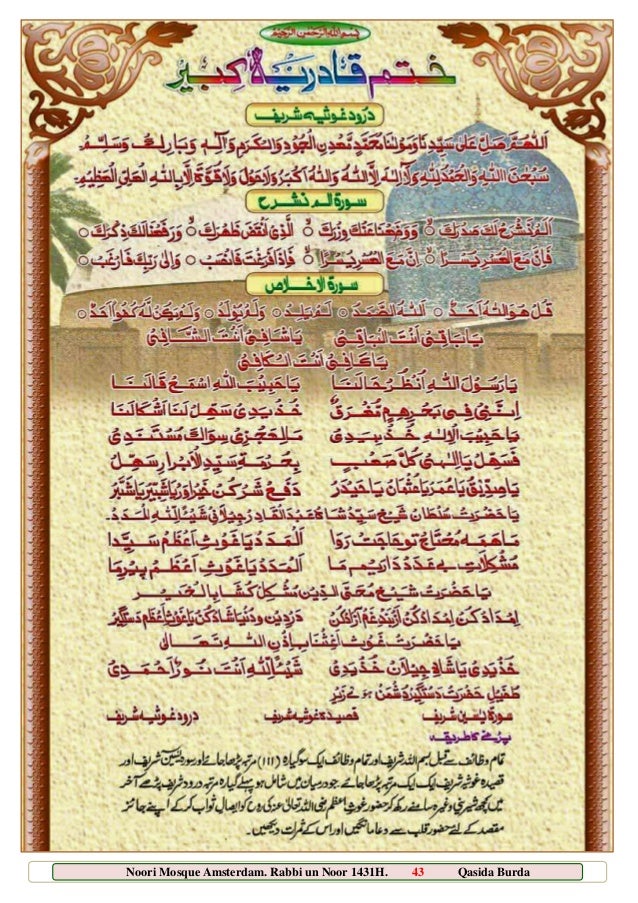 بسم الله الرحمن الرحيم
ختم قادریہ کبیر
درود غوثیہ شریف
اَللّٰهُمَّ صَلِّ عَلٰی سَيِّدِنَا وَمَوْلٰنَا مُحَمَّدٍ مَّعْدِنِ الْجُوْدِ وَالْكَرَمِ وَاٰلِهٖ وَبَارِكْ وَسَلِّمْ۔
سُبْحٰنَ اللّٰهِ وَالْحَمْدُ لِلّٰهِ وَلَآ اِلٰهَ اِلَّا اللّٰهُ وَاللّٰهُ اَكْبَرُ وَلَا حَوْلَ وَلَا قُوَّةَ اِلَّا بِاللّٰهِ الْعَلِیِّ الْعَظِيْمِ۔
سورۃ الم نشرح
اَلَمْ نَشْرَحْ لَكَ صَدْرَكَ ○ وَوَضَعْنَا عَنْكَ وِزْرَكَ ○ الَّذِیْ اَنْقَضَ ظَهْرَكَ ○ وَرَفَعْنَا لَكَ ذِكْرَكَ ○
فَاِنَّ مَعَ الْعُسْرِ يُسْرًا ○ اِنَّ مَعَ الْعُسْرِ يُسْرًا ○ فَاِذَا فَرَغْتَ فَانْصَبْ ○ وَاِلٰی رَبِّكَ فَارْغَبْ ○
سورۃ الاخلاص
قُلْ هُوَ اللّٰهُ اَحَدٌ ○ اَللّٰهُ الصَّمَدُ ○ لَمْ يَلِدْ ○ وَلَمْ يُوْلَدْ ○ وَلَمْ يَكُنْ لَّهٗ كُفُوًا اَحَدٌ ○
يَا بَاقِیْ اَنْتَ الْبَاقِیْ يَا شَافِیْ اَنْتَ الشَّافِیْ
يَا كَافِیْ اَنْتَ الْكَافِیْ
يَا رَسُوْلَ اللّٰهِ اُنْظُرْ حَالَنَا يَا حَبِيْبَ اللّٰهِ اِسْمَعْ قَالَنَا
اِنَّنِیْ فِیْ بَحْرِ هَمٍّ مُّغْرَقٌ خُذْ يَدِیْ سَهِّلْ لَنَا اَشْكَالَنَا
يَا حَبِيْبَ الْاِلٰهِ خُذْ بِيَدِیْ مَا لِعَجْزِیْ سِوَاكَ مُسْتَنَدِیْ
فَسَهِّلْ يَا اِلٰهِیْ كُلَّ صَعْبٍ بِحُرْمَةِ سَيِّدِ الْاَبْرَارِ سَهِّلْ
يَا صِدِّيْقُ يَا عُمَرُ يَا عُثْمَانُ يَا حَيْدَرُ دَفعِ شَرّ كُن خَير آور يَا شَبِّير يَا شَبَّر
يَا حَضْرَت سُلْطَان شَيْخ سَيِّد شَاه عَبْدُ الْقَادِر جِيلَانِی شَيْئًا لِلّٰهِ الْمَدَد۔
مَا هَمَه مُحْتَاج تُو حَاجَت رَوَا اَلْمَدَد يَا غَوْثِ اَعْظَم سَيِّدَا
مُشْكِلَاتِ بے عَدَد دَارِيم مَا اَلْمَدَد يَا غَوْثِ اَعْظَم پِيرِ مَا
يَا حَضْرَت شَيْخ مُحْیُ الدِّيْن مُشْكِل كُشَا بِالْخَيْر
اِمْدَاد كُن اِمْدَاد كُن اَز بَندِ غَم آزَاد كُن دَر دِين و دُنيَا شَاد كُن يَا غَوْثِ اَعْظَم دَستگِير
يَا حَضْرَت غَوْث اَغِثْنَا بِاِذْنِ اللّٰهِ تَعَالٰی
خُذْ يَدِیْ يَا شَاهِ جِيلَان خُذْ يَدِیْ شَيْئًا لِلّٰهِ اَنْتَ نُوْرٌ اَحْمَدِیْ
طُفَيلِ حَضْرَت دَستگِير دُشْمَن هوئے زير
سورۃ یٰسین شریف قصیدہ غوثیہ شریف درود غوثیہ شریف
پڑھنے کا طریقہ
تمام وظائف سے قبل بسم اللہ شریف اور تمام وظائف ایک سو گیارہ (۱۱۱) مرتبہ پڑھا جائے اور سورہ یٰسین شریف اور
قصیدہ غوثیہ شریف ایک ایک مرتبہ پڑھا جائے۔ جو درمیان میں شامل ہو پہلے گیارہ مرتبہ درود شریف پڑھے آخر
میں کچھ شیرینی وغیرہ سامنے رکھ کر حضور غوث اعظم رضی اللہ تعالیٰ عنہ کی روح کو ایصال ثواب کر کے اپنے جائز
مقصد کے لئے حضور قلب سے دعا مانگیں اور اس کے ثمرات دیکھیں۔
Noori Mosque Amsterdam. Rabbi un Noor 1431H. 43 Qasida Burda